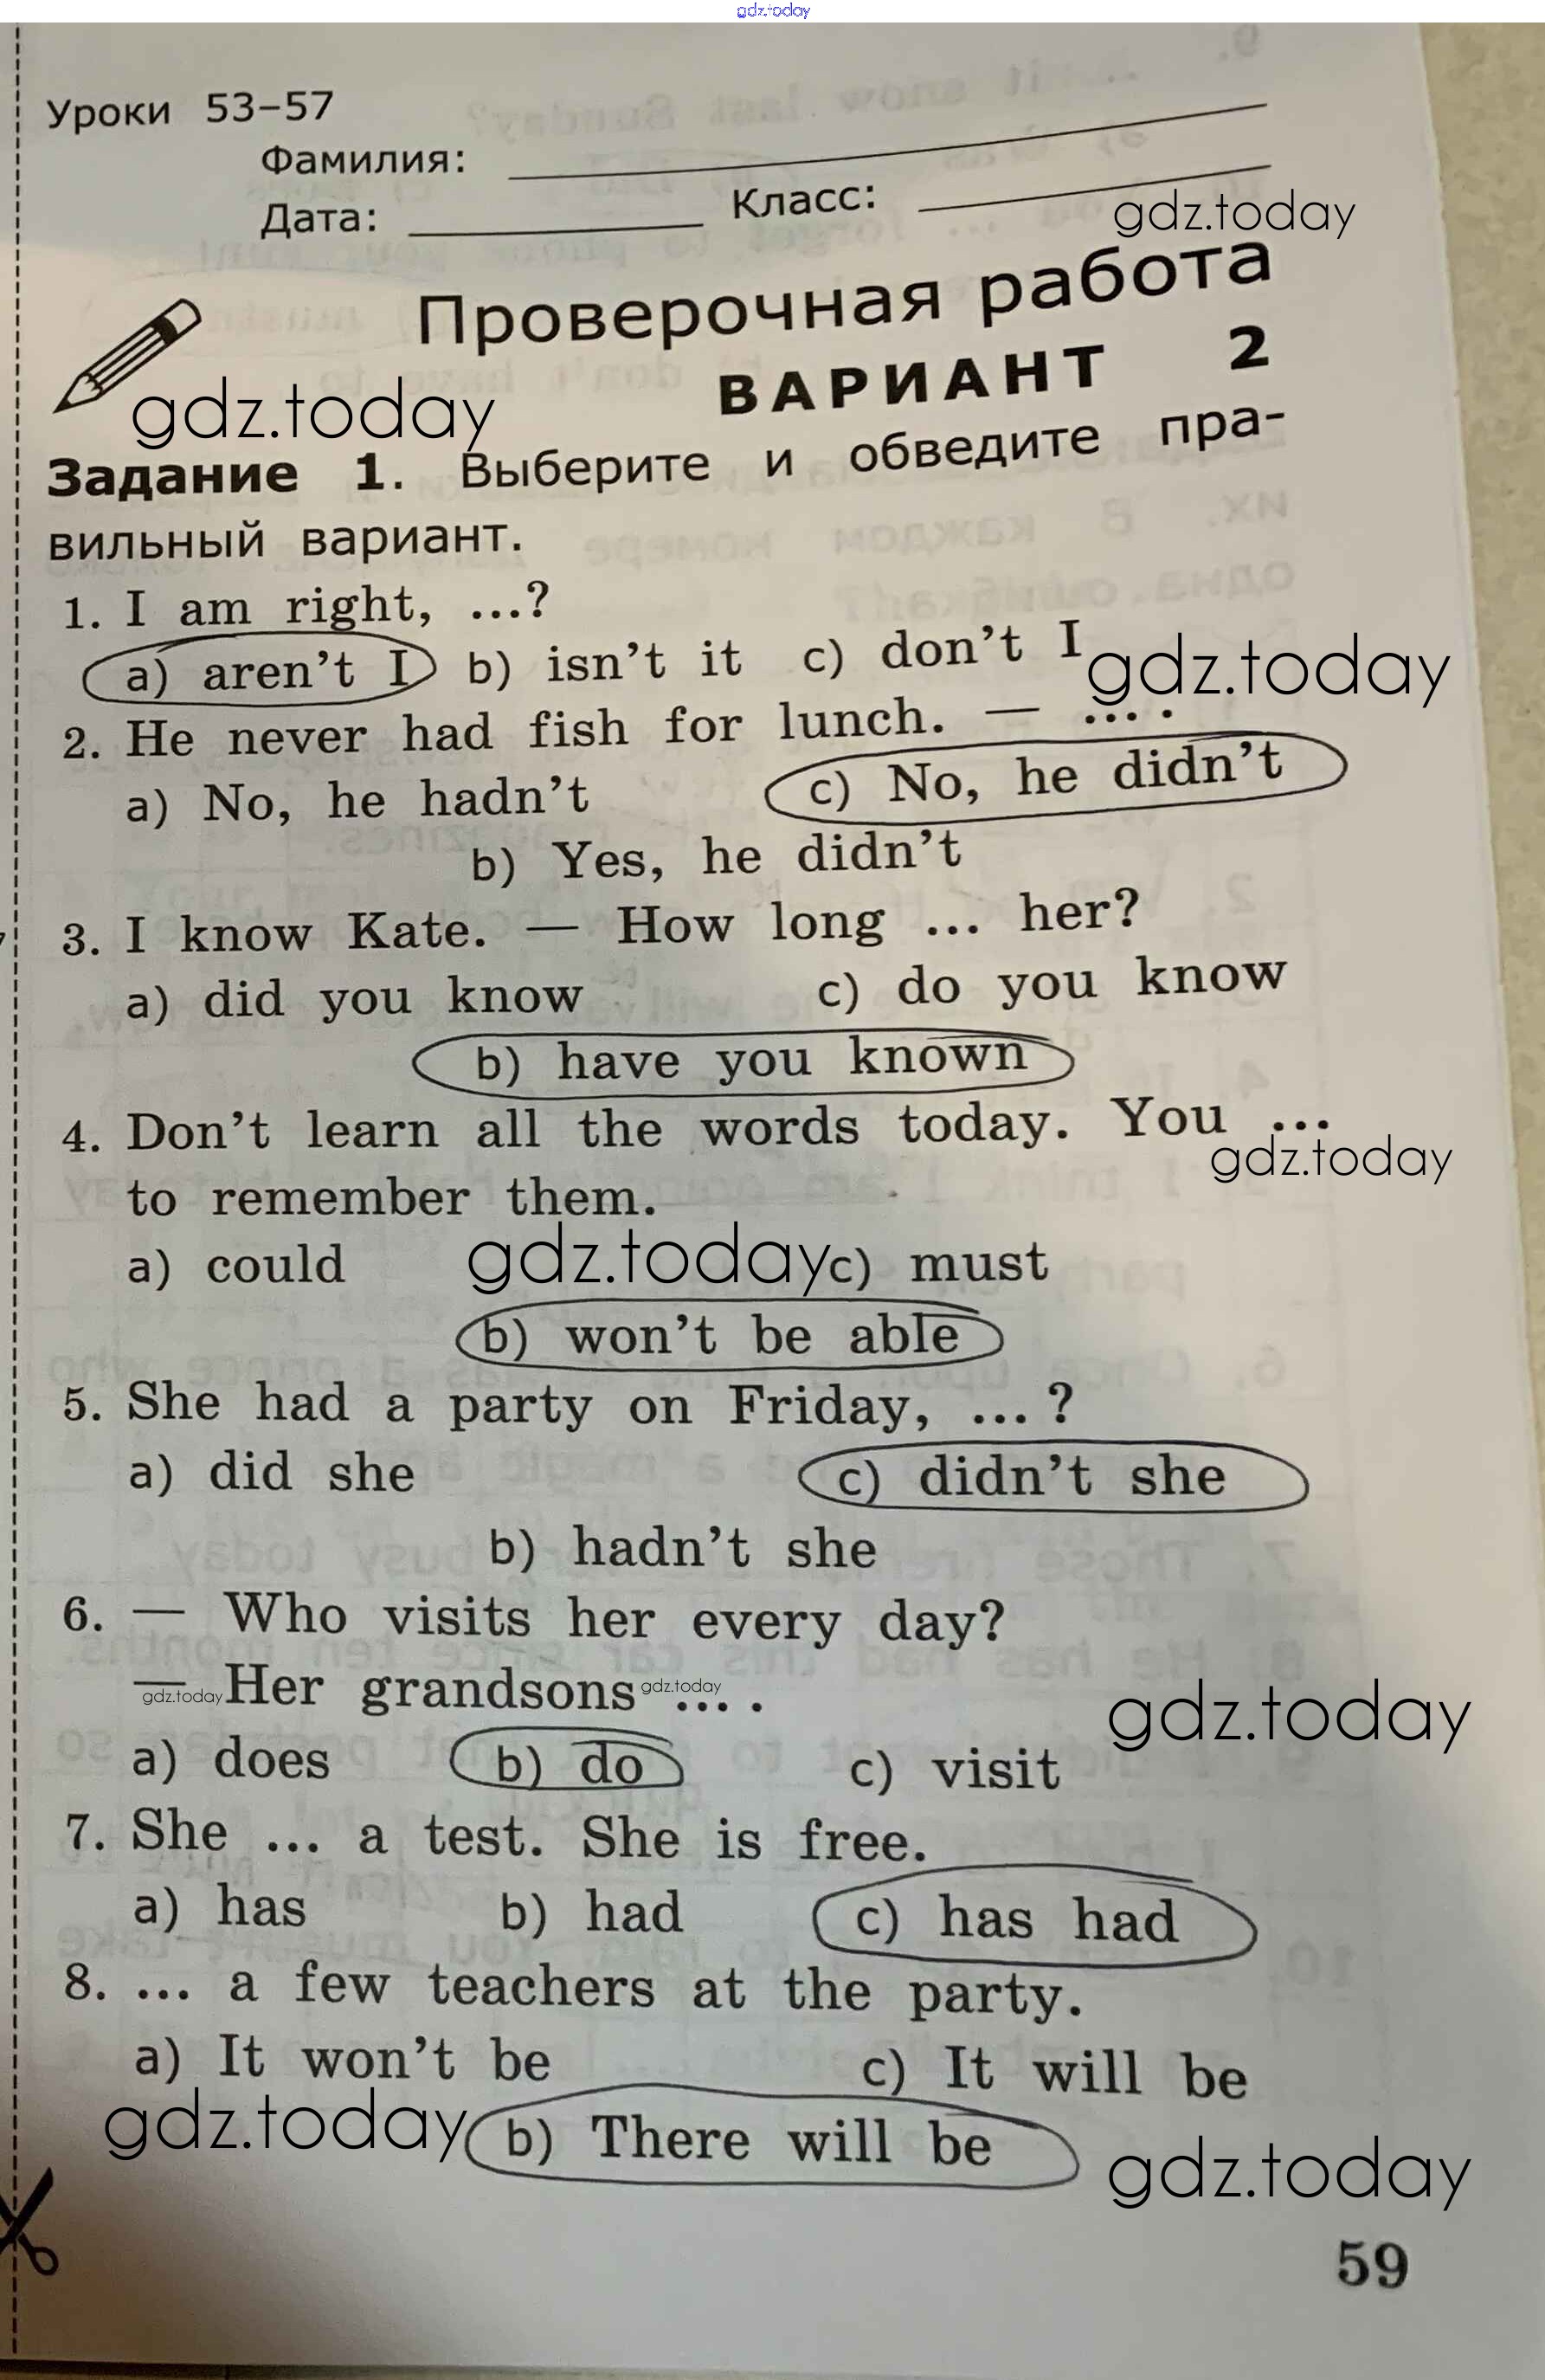 gdz.today
Уроки 53–57
Фамилия:
Дата: Класс:
gdz.today
Проверочная работа
ВАРИАНТ 2
gdz.today
Задание 1. Выберите и обведите пра-
вильный вариант.
1. I am right, ...?
a) aren't I b) isn't it c) don't I
gdz.today
2. He never had fish for lunch. — ... .
a) No, he hadn't c) No, he didn't
b) Yes, he didn't
3. I know Kate. — How long ... her?
a) did you know c) do you know
b) have you known
4. Don't learn all the words today. You ...
gdz.today
to remember them.
a) could gdz.today c) must
b) won't be able
5. She had a party on Friday, ... ?
a) did she c) didn't she
b) hadn't she
6. — Who visits her every day?
— Her grandsons ... .
gdz.today gdz.today
gdz.today
a) does b) do c) visit
7. She ... a test. She is free.
a) has b) had c) has had
8. ... a few teachers at the party.
a) It won't be c) It will be
gdz.today
b) There will be
gdz.today
59